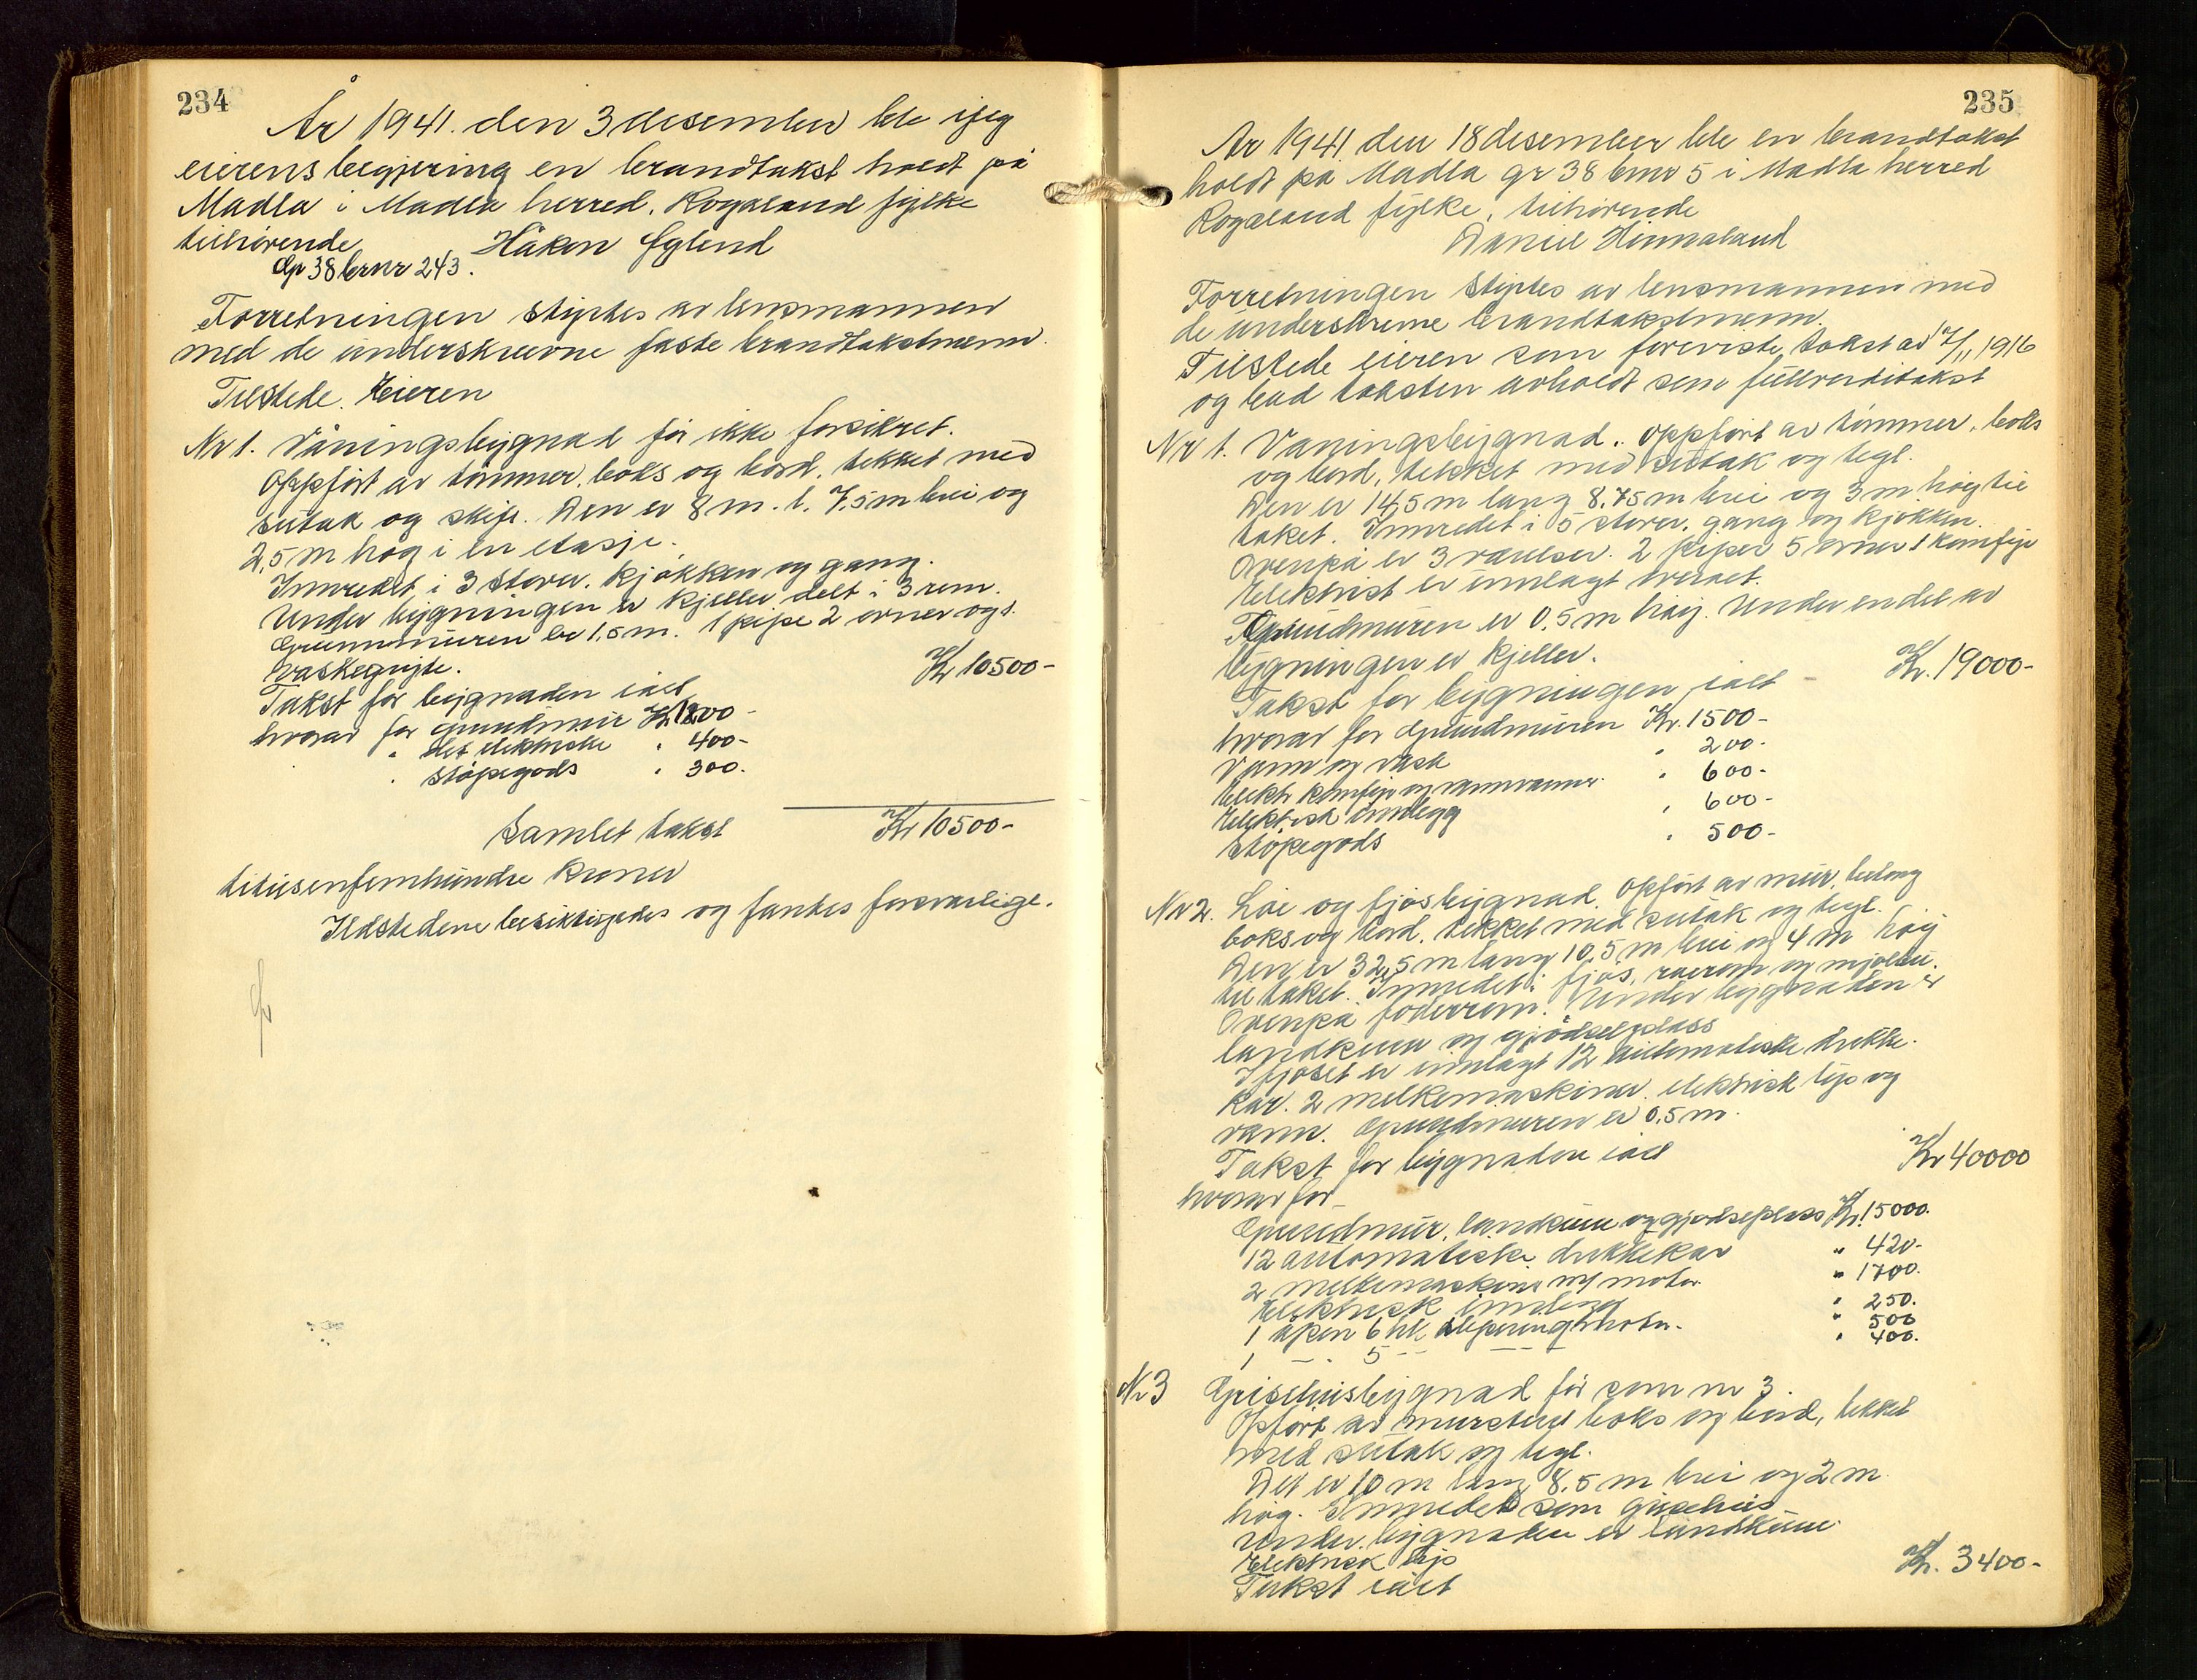 234
År 1941. den 3 desember ble efter
eierens begjering en brandtakst holdt på
Madla i Madla herred, Rogaland fylke
tilhørende Håkon Eglend
Gr 38 bnr 243.
Forretningen styrtes av lensmannen
med de underskrevne faste brandtakstmenn.
Tilstede. Eieren
Nr 1. Våningsbygnad før ikke forsikret.
Oppført av tømmer, boks og bord, tekket med
sutak og skifr. Den er 8 m. l. 7,5 m brei og
2,5 m høg i en etasje.
Innredet i 3 stover, kjøkken og gang.
Under bygningen er kjeller delt i 3 rom.
Grunnmuren er 1,5 m. 1 pipe 2 ovner og 1
vaskegryte.
Takst for bygnaden ialt Kr 10500-
hvorav for grundmur Kr 1200-
" det elektriske " 400-
" støpegods " 300.
Samlet takst Kr 10500-
titusenfemhundre kroner
Ildstedene besiktigedes og fantes forsvarlige.
235
År 1941 den 18 desember ble en brandtakst
holdt på Madla gr 38 bnr 5 i Madla herred
Rogaland fylke, tilhørende
Daniel Hinnaland
Forretningen styrtes av lensmannen med
de underskrevne brandtakstmenn.
Tilstede eieren som foreviste takst av /11 1916
og bad taksten avholdt som fullverditakst
Nr 1. Våningsbygnad. Oppført av tømmer, boks
og bord, tekket med sutak og tegl.
Den er 14,5 m lang 8,75 m brei og 3 m høg til
taket. Innredet i 5 stover, gang og kjøkken.
Ovenpå er 3 værelser. 2 piper 5 ovner 1 komfyr
Elektrisk er innlagt overalt.
Grundmuren er 0,5 m høg. Under en del av
bygningen er kjeller.
Takst for bygningen ialt - Kr. 19000-
hvorav for Grundmuren Kr. 1500-
Vann og vask " 200-
Elektr komfyr og vannvarmer. " 600-
Elektrisk innlegg " 600-
Støpegods " 500-
Nr 2. Løe og fjøsbygnad. Opført av mur, betong
boks og bord, tekket med sutak og tegl.
Den er 32,5 m lang 10,5 m brei og 4 m høg
til taket. Innredet i fjøs, og mjølbu.
Ovenpå foderrom. Under bygnaden er
landkum og gjødselplass
I fjøset er innlagt 12 automatiske drikke-
kar. 2 melkemaskiner. elektrisk lys og
vann. Grundmuren er 0,5 m.
Takst for bygnaden ialt Kr 40000
hvorav for
Grundmur, landkum og gjødselplass Kr. 15000.
12 automatiske drikkekar " 420-
2 melkemaskiner m/ motor. " 1700.
Elektrisk innlegg " 250.
1 åpen 6 hk motor. " 500
1 - " - 5 - - - - " 400.
Nr 3 Grisehusbygnad før som nr 3.
Opført av murstein boks og bord, tekket
med sutak og tegl.
Det er 10 m lang 8,5 m brei og 2 m
høg. Innredet som grisehus
Under bygnaden er landkum.
Elektrisk lys
Takst ialt Kr. 3400-